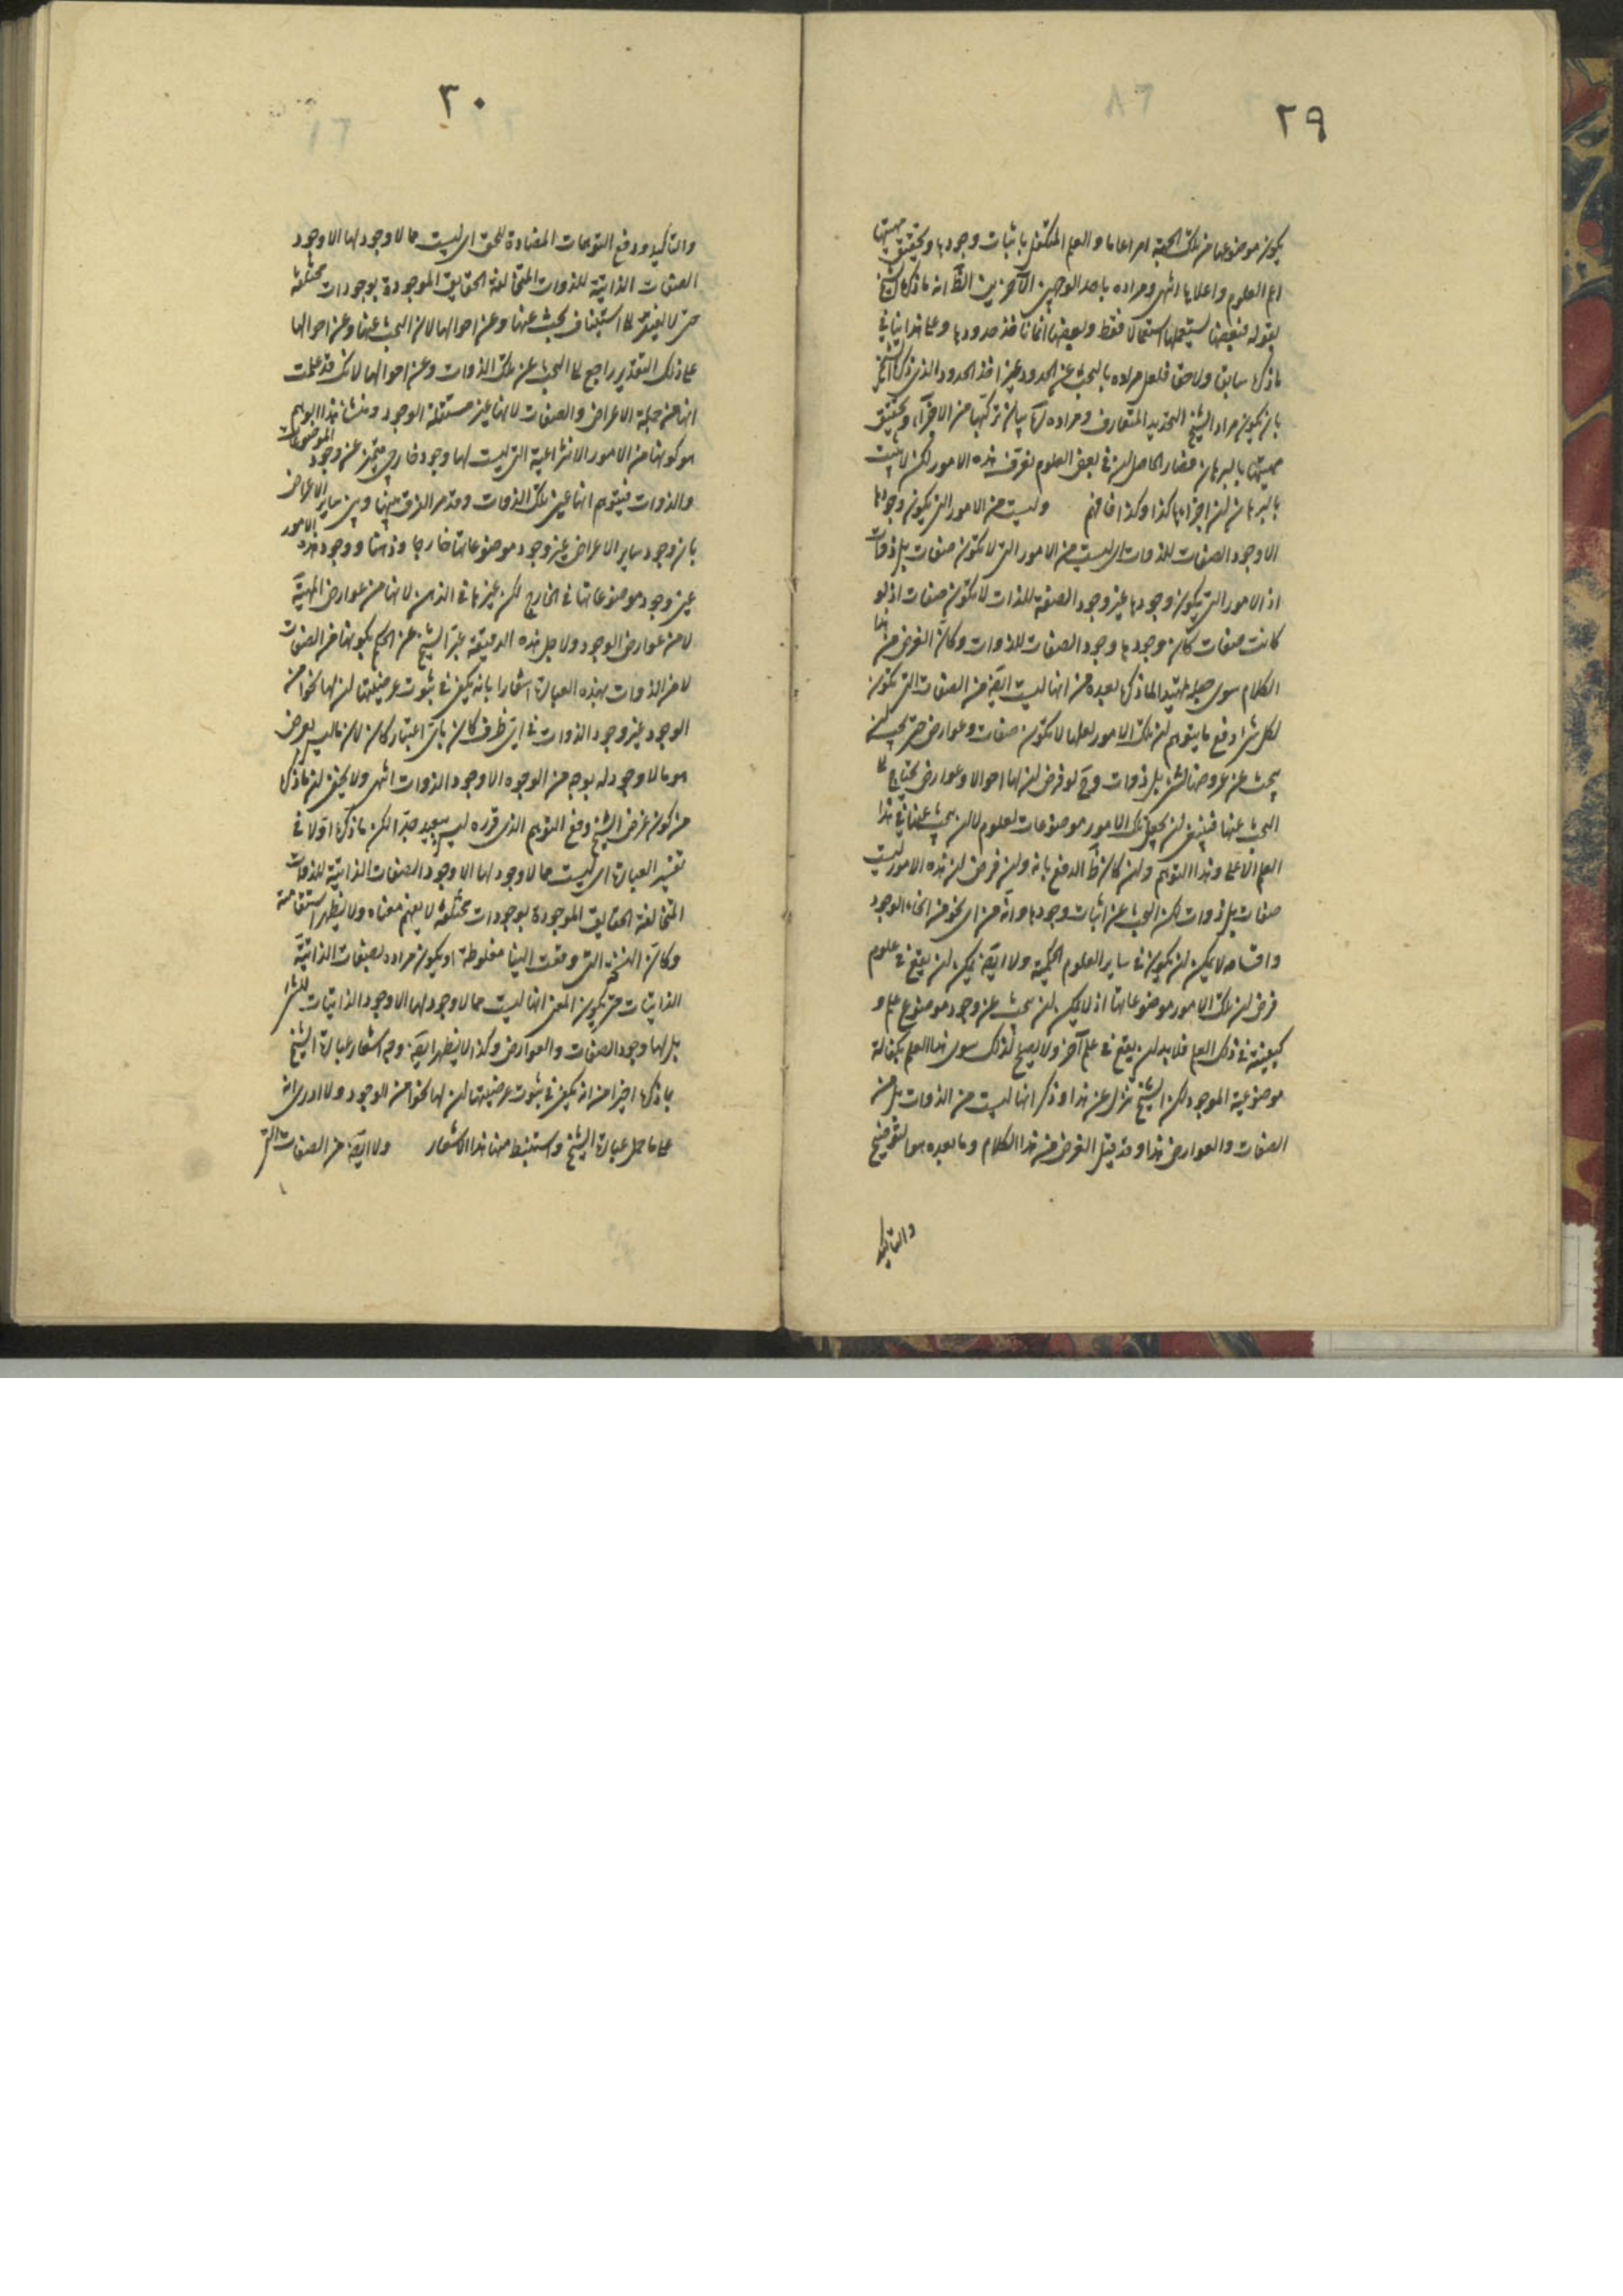 ٢٩
يكون موضوعها من تلك الجهة امرا عاما والعلم المتكفل باثبات وجودها وتحقيق مهيتها
اعم العلوم واعلاها انتهى ومراده باحد الوجهين الآخرين الظ انه ما ذكره الشيخ
بقوله فبعضها يستعملها استعمالا فقط وبعضها انما ياخذ حدودها وعلى هذا ينافي
ما ذكره سابقا ولاحقا فلعل مراده بالبحث عن الحدود غير اخذ الحدود الذي ذكره الشيخ
بان يكون مراد الشيخ التحديد المتعارف ومراده ره بيان تركبها من الاجزاء وتحقيق
مهيتها بالبرهان فصار الحاصل ان في بعض العلوم تعرف هذه الامور لكن لا يثبت
بالبرهان ان اجزاءها كذا وكذا فافهم وليست من الامور التي يكون وجودها
الا وجود الصفات للذوات اي ليست من الامور التي لا تكون صفات بل ذوات
اذ الامور التي يكون وجودها غير وجود الصفة للذات لا تكون صفات اذ لو
كانت صفات كان وجودها وجود الصفات للذوات وكان الغرض من هذا
الكلام سوى جعله تمهيدا لما ذكره بعده من انها ليست ايضا من الصفات التي تكون
لكل شئ دفع ما يتوهم ان تلك الامور لعلها لا تكون صفات وعوارض حتى يجب ان
يبحث عن عروضها لشئ بل ذوات وح لو فرض ان لها احوالا وعوارض يحتاج الى
البحث عنها فينبغي ان يجعل تلك الامور موضوعات لعلوم لا ان يبحث عنها في هذا
العلم الاعلى وهذا التوهم وان كان ظ الدفع بانه وان فرض ان هذه الامور ليست
صفات بل ذوات لكن البحث عن اثبات وجودها وانه من اي نحو من انحاء الوجود
واقسامه لا يمكن ان يكون في ساير العلوم الحكمية ولا ايضا يمكن ان يقع في علوم
فرض ان تلك الامور موضوعاتها اذ لا يمكن ان يبحث عن وجود موضوع علم و
كيفيته في ذلك العلم فلا بد ان يقع في علم آخر ولا يصلح لذلك سوى هذا العلم بكفالة
موضوعية الموجود لكن الشيخ تنزل عن هذا وذكر انها ليست من الذوات بل من
الصفات والعوارض هذا وقد قيل الغرض من هذا الكلام وما بعده هو التوضيح
والتاكيد
٣٠
والتاكيد ودفع التوهمات المضادة للحق اي ليست مما لا وجود لها الا وجود
الصفات الذاتية للذوات المتخالفة الحقايق الموجودة بوجودات مختلفة
حتى لا يفتقر الى استيناف بحث عنها وعن احوالها لان البحث عنها وعن احوالها
على ذلك التقدير راجع الى البحث عن تلك الذوات وعن احوالها لانك قد علمت
انها من جملة الاعراض والصفات لانها غير مستقلة الوجود ومنشأ هذا التوهم
هو كونها من الامور الانتزاعية التي ليست لها وجود خارجي متميز عن وجود الموضوعات
والذوات فيتوهم انها عين تلك الذوات وقد مر الفرق بينها وبين ساير الاعراض
بان وجود ساير الاعراض غير وجود موضوعاتها خارجا وذهنا ووجود هذه الامور
عين وجود موضوعاتها في الخارج لكن غيرها في الذهن لانها من عوارض المهية
لا من عوارض الوجود ولاجل هذه الدقيقة عبر الشيخ عن الحكم بكونها من الصفات
لا من الذوات بهذه العبارة اشعارا بانه يكفي في ثبوت عرضيتها ان لها نحوا من
الوجود غير وجود الذوات في اي ظرف كان باي اعتبار كان لان ما ليس بعرض
هو ما لا وجود له بوجه من الوجوه الا وجود الذوات انتهى ولا يخفى ان ما ذكره
من كون غرض الشيخ دفع التوهم الذي قرره ليس ببعيد جدا لكن ما ذكره اولا في
تفسير العبارة اي ليست مما لا وجود لها الا وجود الصفات الذاتية للذوات
المتخالفة الحقايق الموجودة بوجودات مختلفة لا يفهم معناه ولا يظهر استقامته
وكان النسخة التي وقعت الينا مغلوطة او يكون مراده بصفات الذاتية
الذاتيات حتى يكون المعنى انها ليست مما لا وجود لها الا وجود الذاتيات للشئ
بل لها وجود الصفات والعوارض وكذا لا يظهر ايضا وجه اشعار عبارة الشيخ
بما ذكره اخيرا من انه يكفي في ثبوت عرضيتها ان لها نحوا من الوجود ولا ادري انه
على ما حمل عبارة الشيخ واستنبط منها هذا الاشعار ولا ايضا من الصفات التي